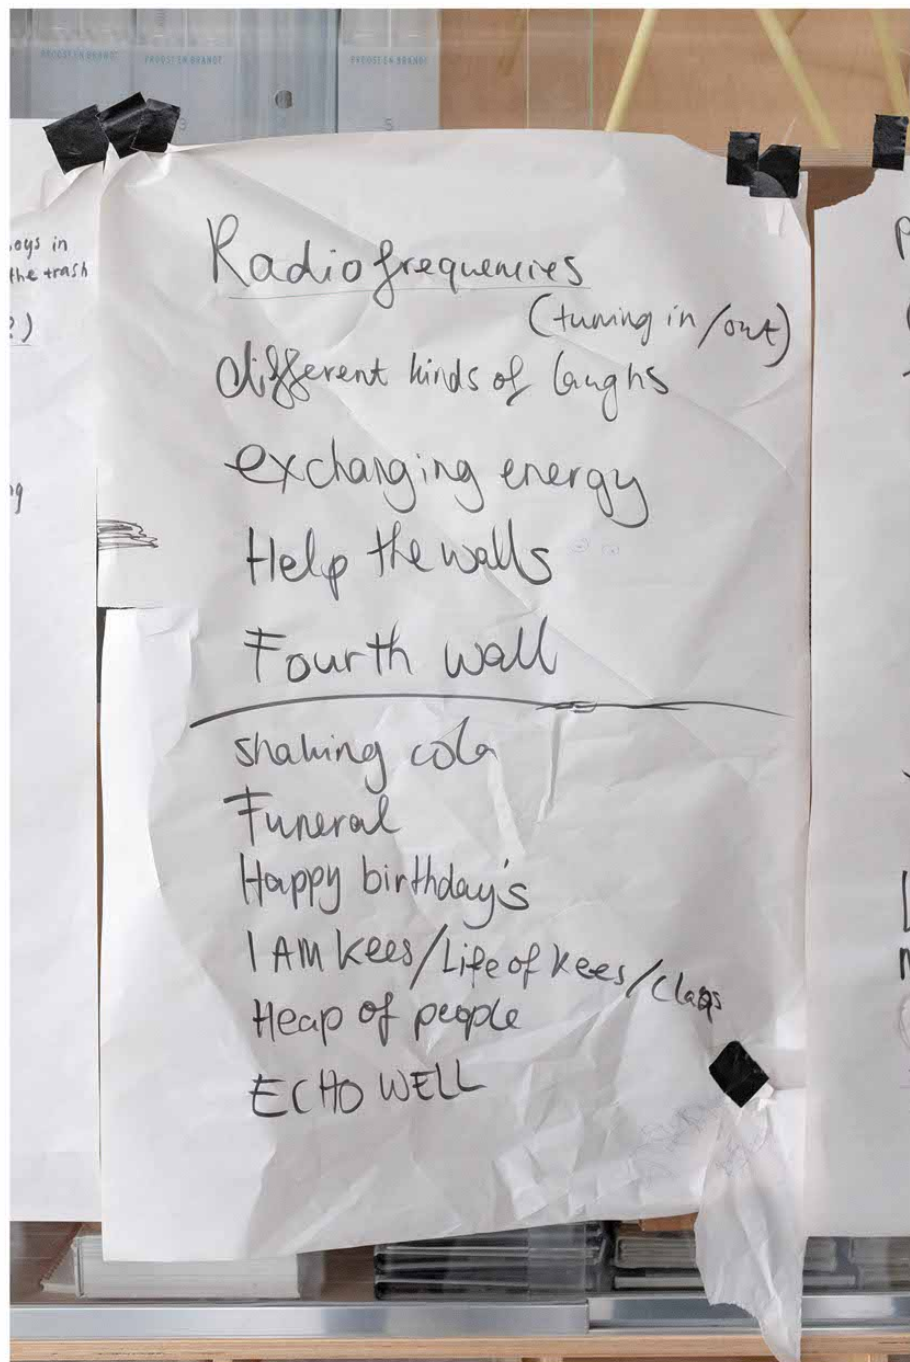 PROOST EN BRANDT
PROOST EN BRANDT
PROOST EN BRANDT
5
oys in
the trash
?)
Radiofrequencies
(tuning in/out)
different kinds of laughs
exchanging energy
Help the walls
Fourth wall
shaking cola
Funeral
Happy birthday's
I AM kees/Life of kees/Claps
Heap of people
ECHO WELL